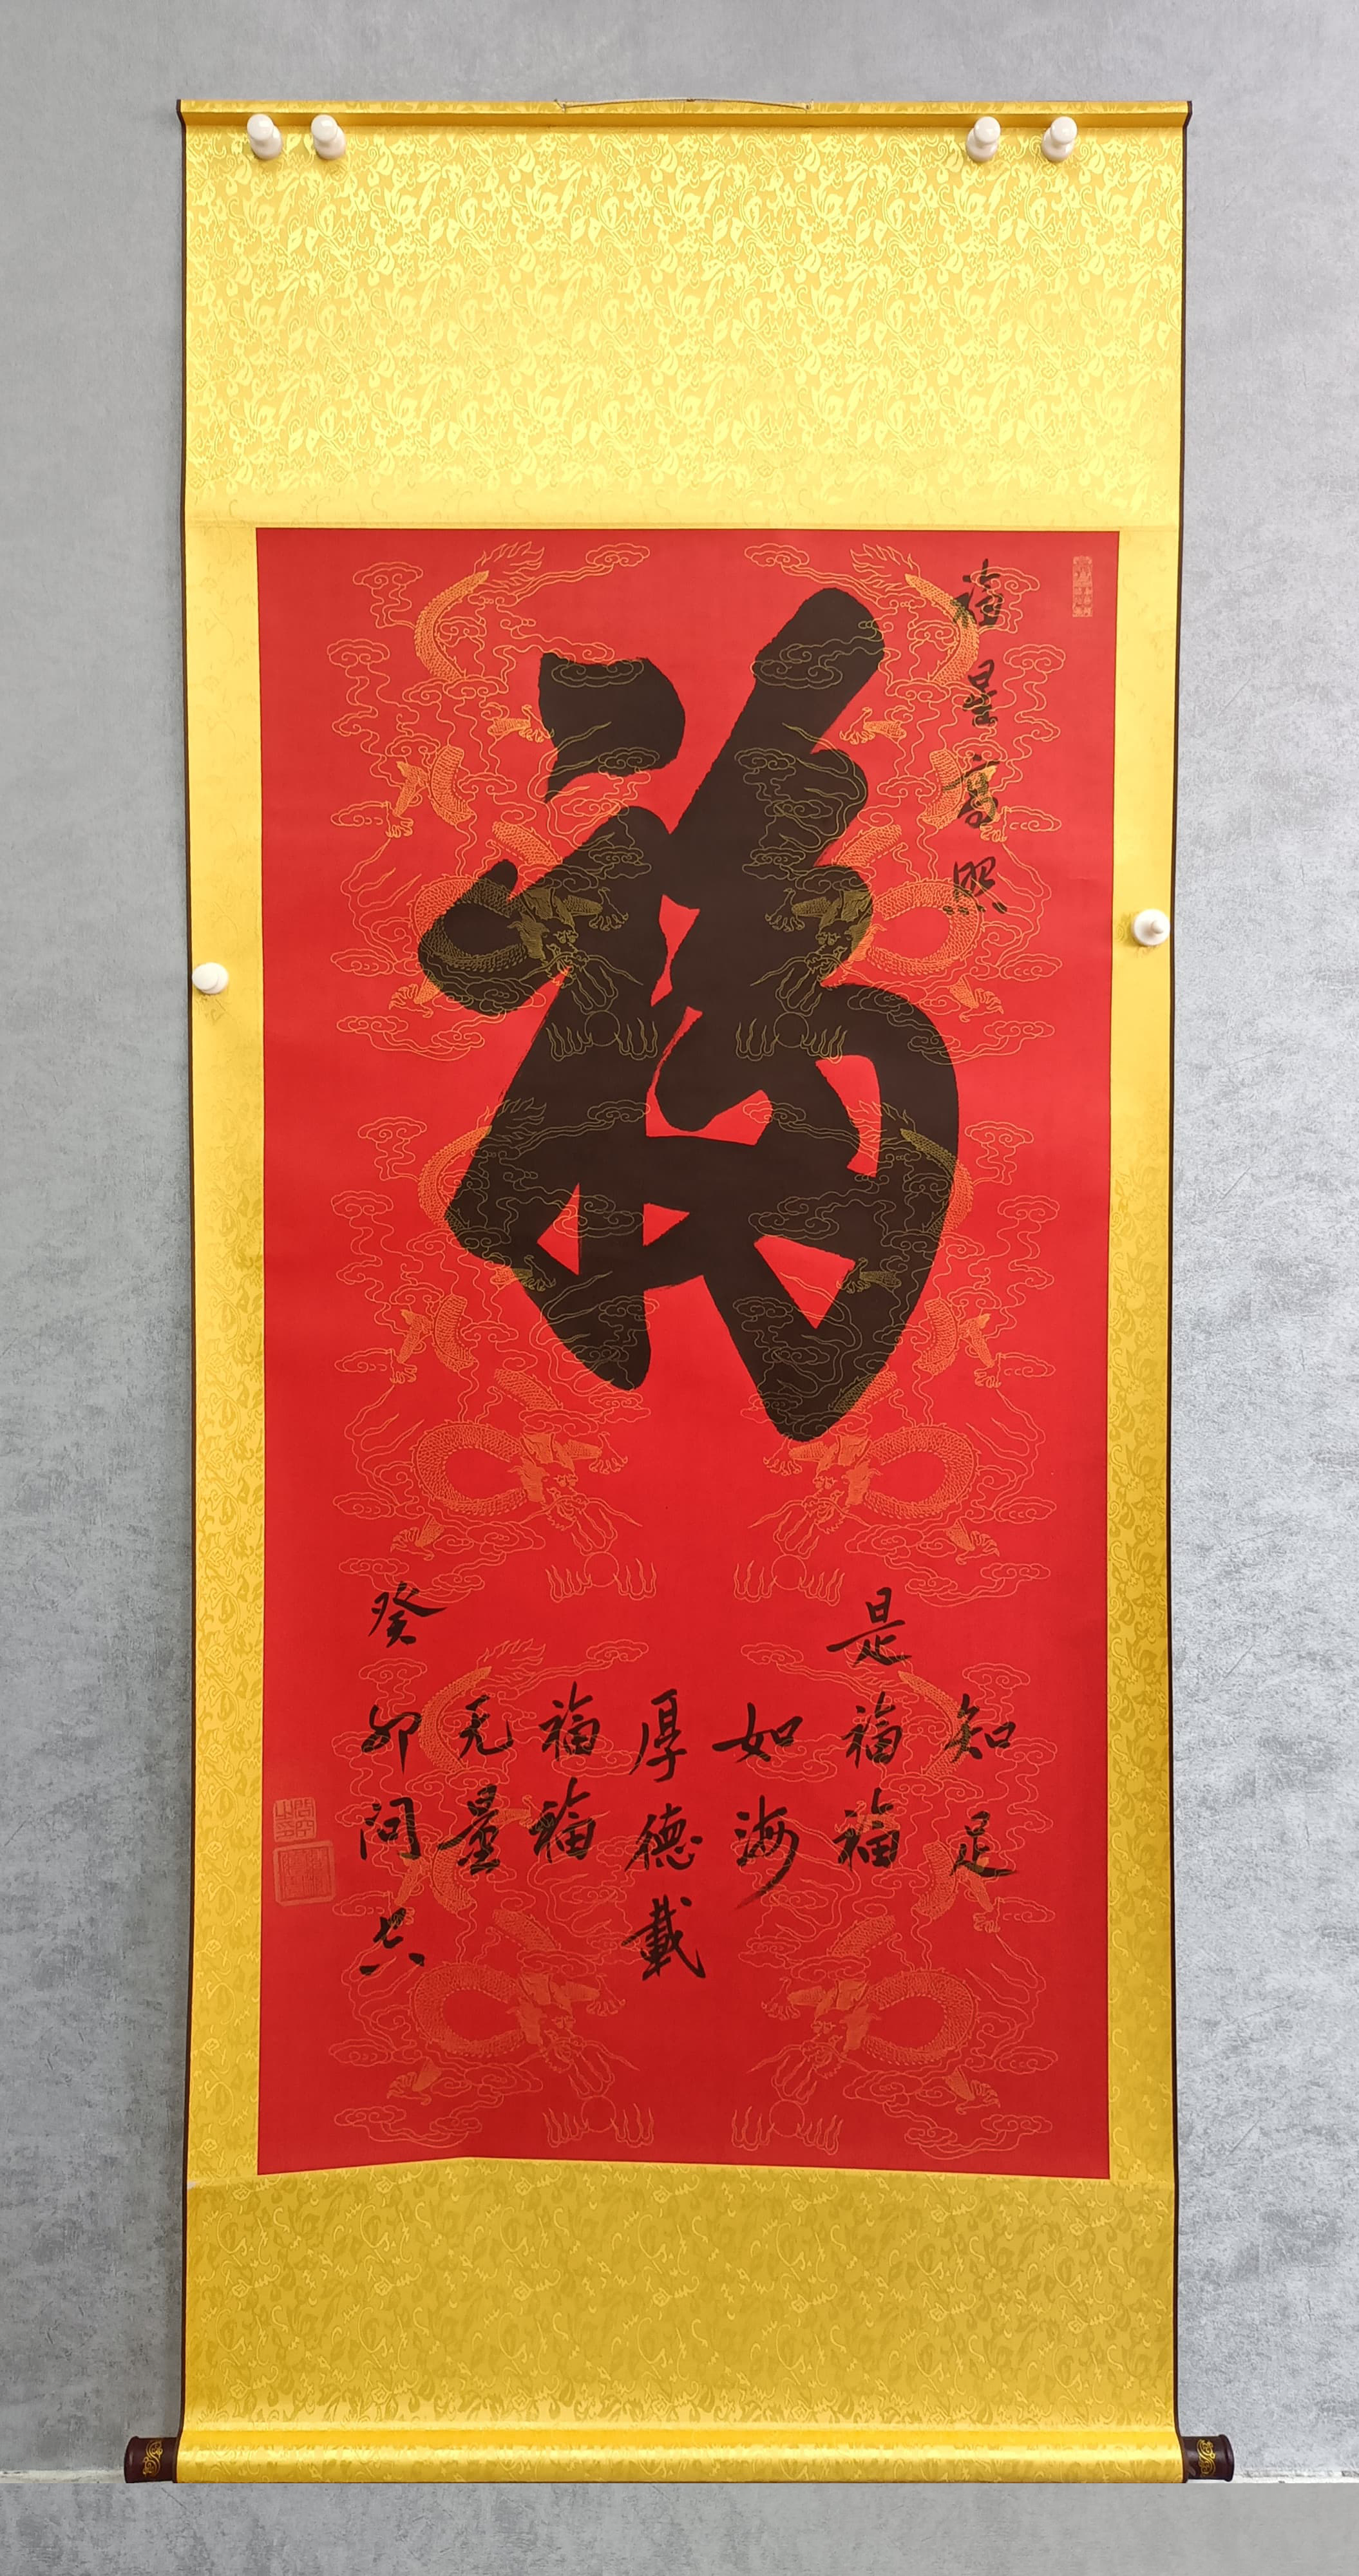 福星高照
福
知足
是福福
如海
厚德載
福福
无量
癸卯问六